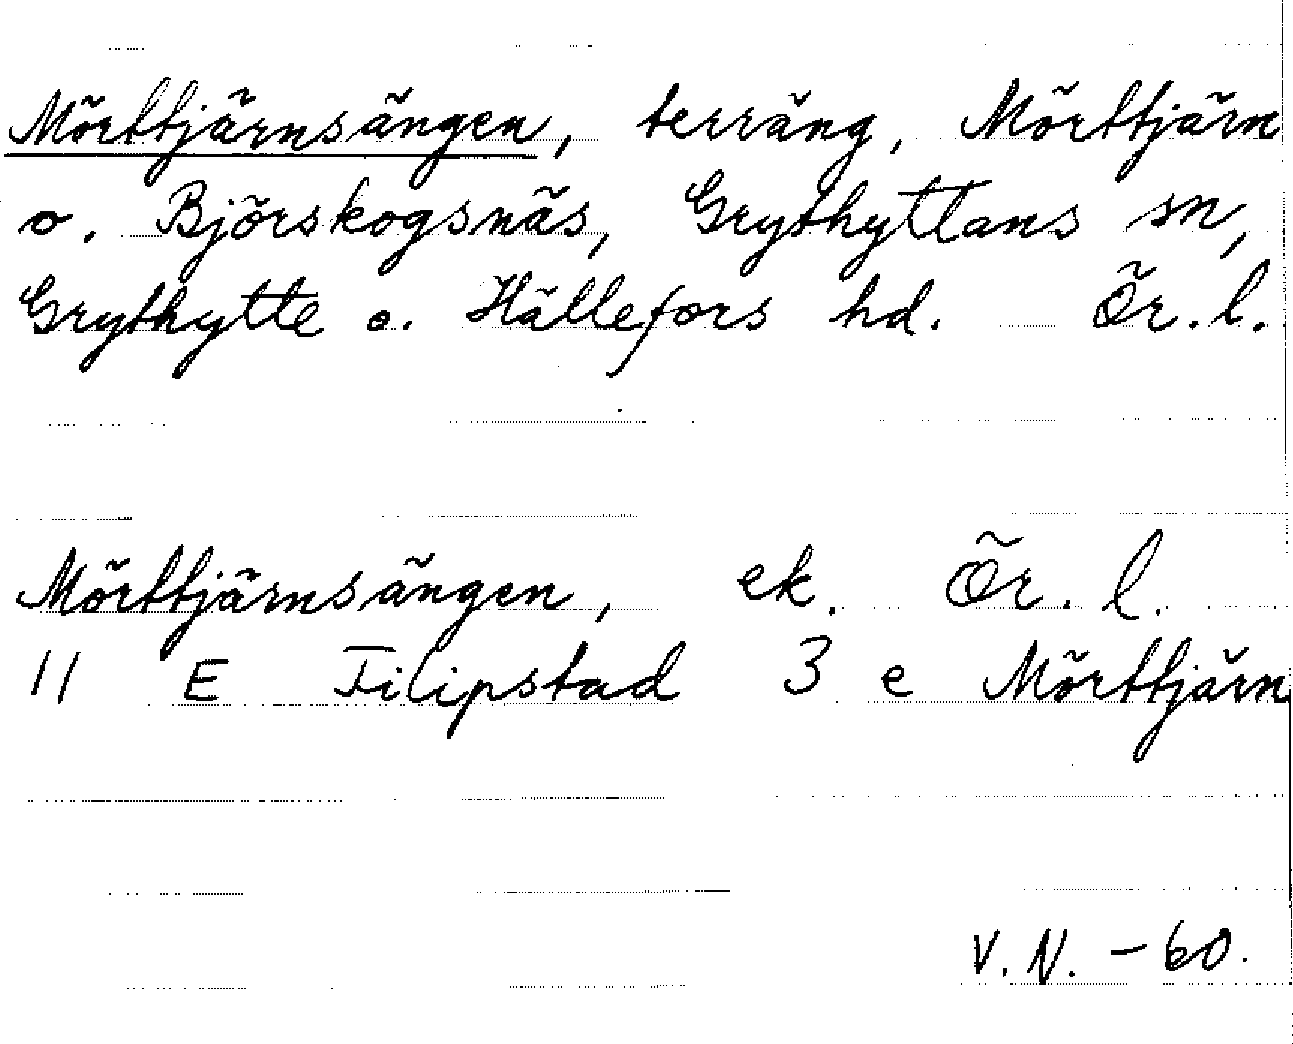 Mörttjärnsängen, terräng, Mörttjärn
o. Björskogsnäs, Grythyttans sn,
Grythytte o. Hällefors hd. Ör. l.
Mörttjärnsängen, ek. Ör. l.
11 E Filipstad 3 e Mörttjärn
V. N. - 60.